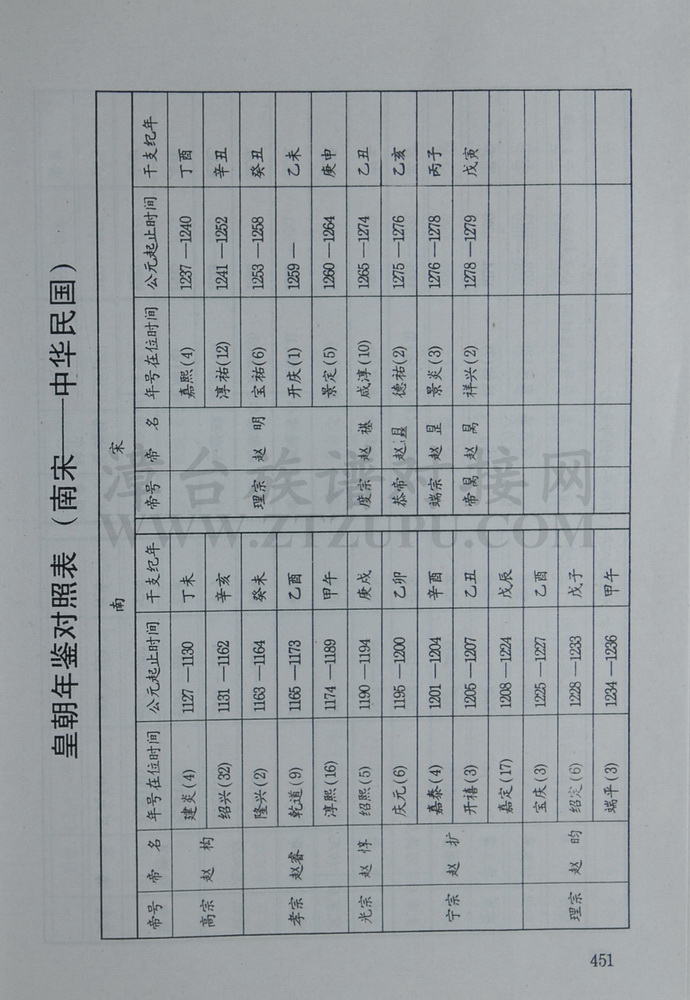 皇朝年鉴对照表（南宋——中华民国）
南 宋
帝号 帝 名 年号在位时间 公元起止时间 干支纪年 帝号 帝 名 年号在位时间 公元起止时间 干支纪年
高宗 赵 构 建炎(4) 1127—1130 丁未 理宗 赵 明 嘉熙(4) 1237—1240 丁酉
绍兴(32) 1131—1162 辛亥 淳祐(12) 1241—1252 辛丑
孝宗 赵睿 隆兴(2) 1163—1164 癸未 宝祐(6) 1253—1258 癸丑
乾道(9) 1165—1173 乙酉 开庆(1) 1259— 乙未
淳熙(16) 1174—1189 甲午 景定(5) 1260—1264 庚申
光宗 赵 惇 绍熙(5) 1190—1194 庚戍 度宗 赵 禥 咸淳(10) 1265—1274 乙丑
宁宗 赵 扩 庆元(6) 1195—1200 乙卯 恭帝 赵 德祐(2) 1275—1276 乙亥
嘉泰(4) 1201—1204 辛酉 端宗 赵 昰 景炎(3) 1276—1278 丙子
开禧(3) 1205—1207 乙丑 帝昺 赵 昺 祥兴(2) 1278—1279 戊寅
嘉定(17) 1208—1224 戊辰
理宗 赵 昀 宝庆(3) 1225—1227 乙酉
绍定(6) 1228—1233 戊子
端平(3) 1234—1236 甲午
451
漳台族谱对接网
WWW.ZTZUPU.COM